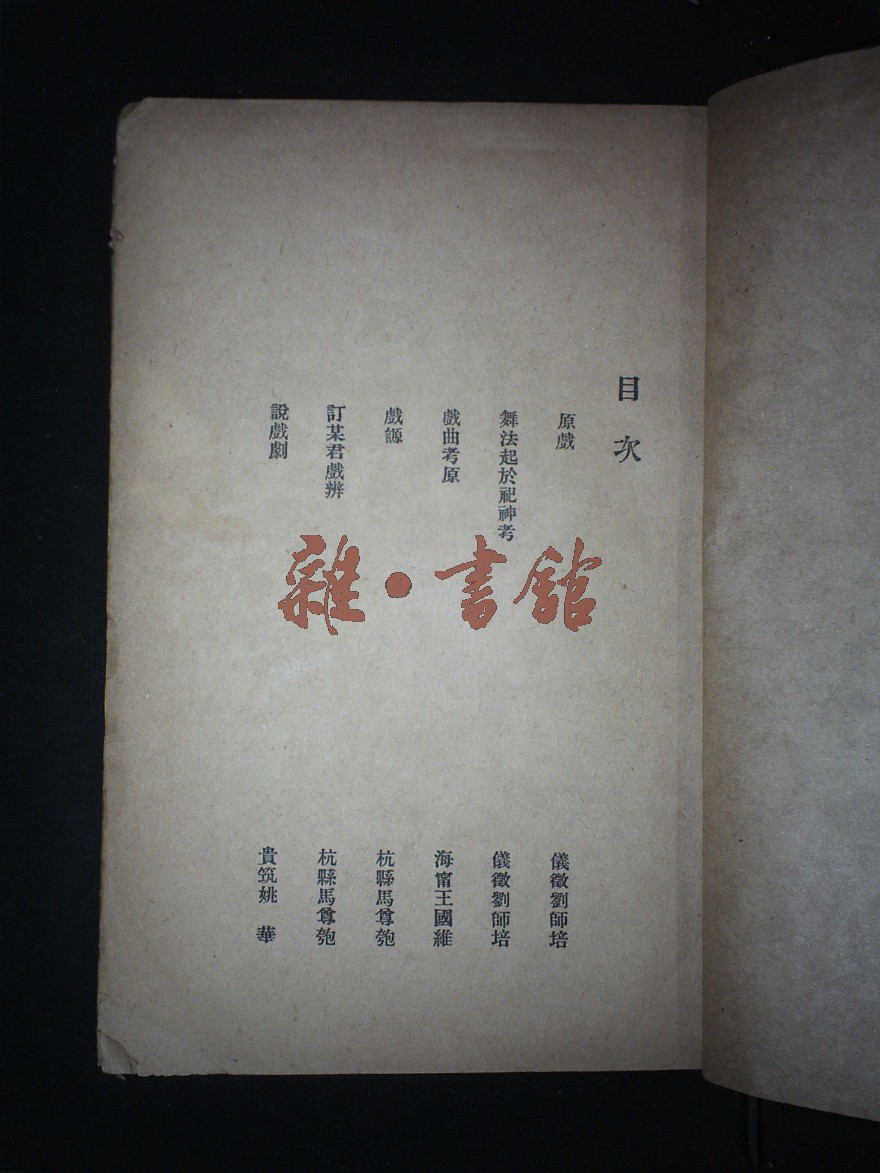 目次
原戲
儀徵劉師培
舞法起於祀神考
儀徵劉師培
戲曲考原
海甯王國維
戲源
杭縣馬尊匏
訂某君戲辨
杭縣馬尊匏
說戲劇
貴筑姚華
雜·書館